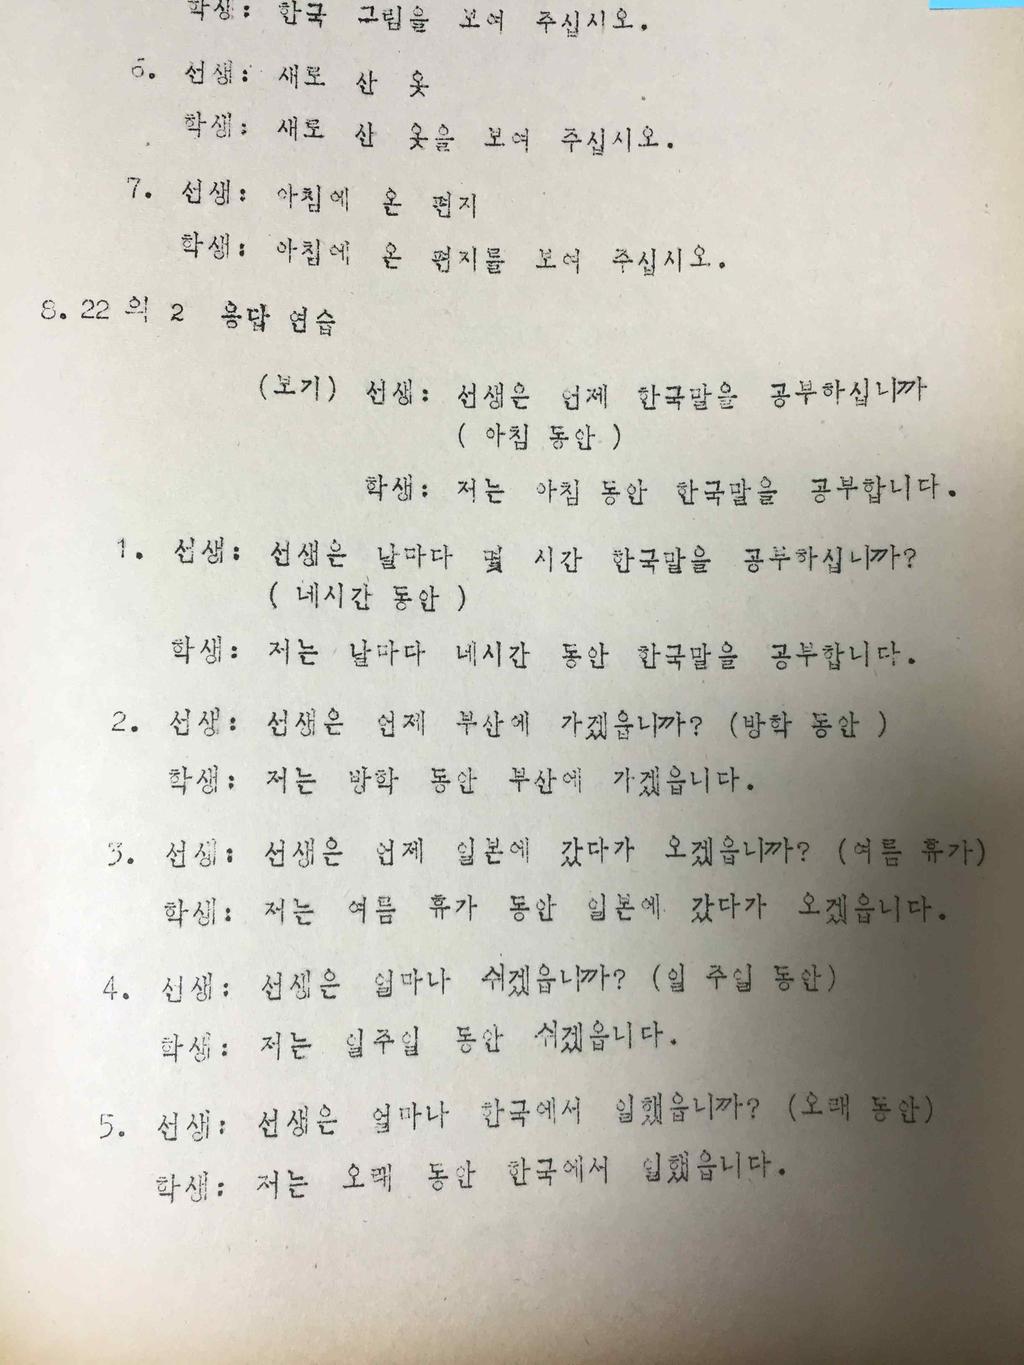 학생: 한국 그림을 보여 주십시오.
6. 선생: 새로 산 옷
학생: 새로 산 옷을 보여 주십시오.
7. 선생: 아침에 온 편지
학생: 아침에 온 편지를 보여 주십시오.
8.22 의 2 응답 연습
(보기) 선생: 선생은 언제 한국말을 공부하십니까
( 아침 동안 )
학생: 저는 아침 동안 한국말을 공부합니다.
1. 선생: 선생은 날마다 몇 시간 한국말을 공부하십니까?
( 네시간 동안 )
학생: 저는 날마다 네시간 동안 한국말을 공부합니다.
2. 선생: 선생은 언제 부산에 가겠읍니까? (방학 동안 )
학생: 저는 방학 동안 부산에 가겠읍니다.
3. 선생: 선생은 언제 일본에 갔다가 오겠읍니까? (여름 휴가)
학생: 저는 여름 휴가 동안 일본에 갔다가 오겠읍니다.
4. 선생: 선생은 얼마나 쉬겠읍니까? (일 주일 동안)
학생: 저는 일주일 동안 쉬겠읍니다.
5. 선생: 선생은 얼마나 한국에서 일했읍니까? (오래 동안)
학생: 저는 오래 동안 한국에서 일했읍니다.